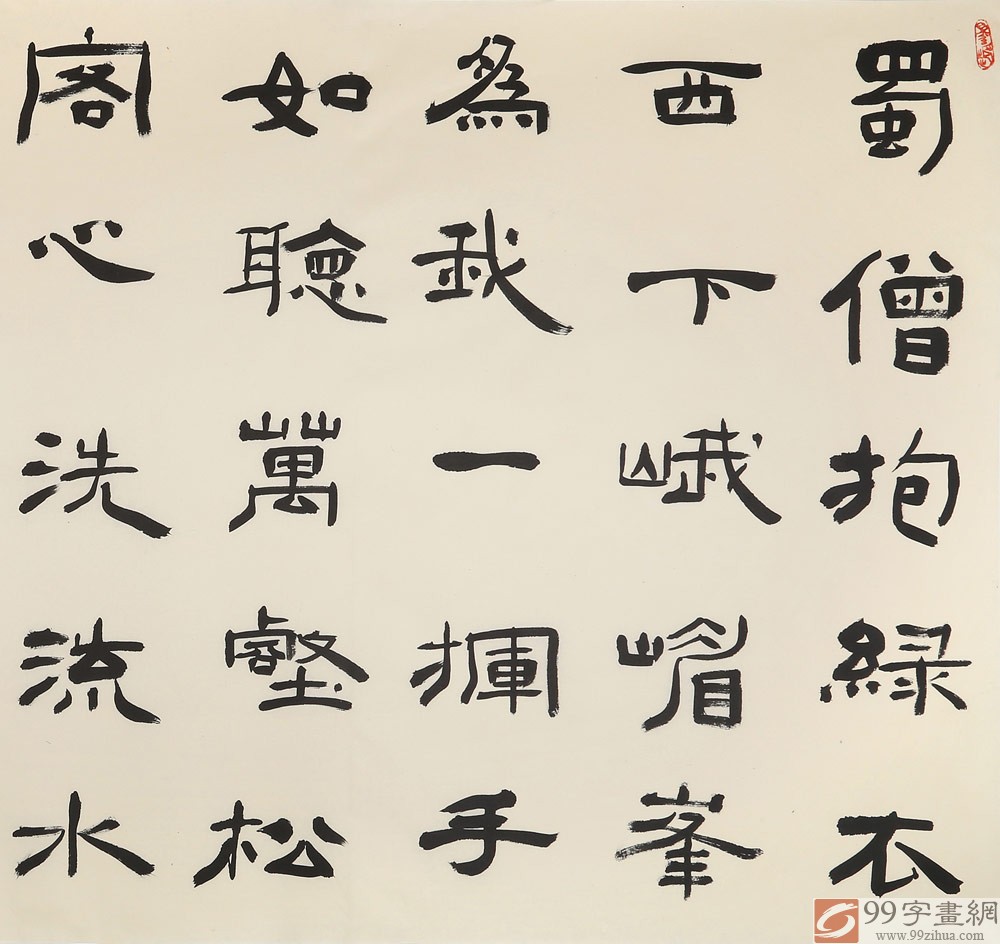 蜀僧抱綠衣
西下峨嵋峯
為我一揮手
如聽萬壑松
客心洗流水
99字畫網
www.99zihua.com